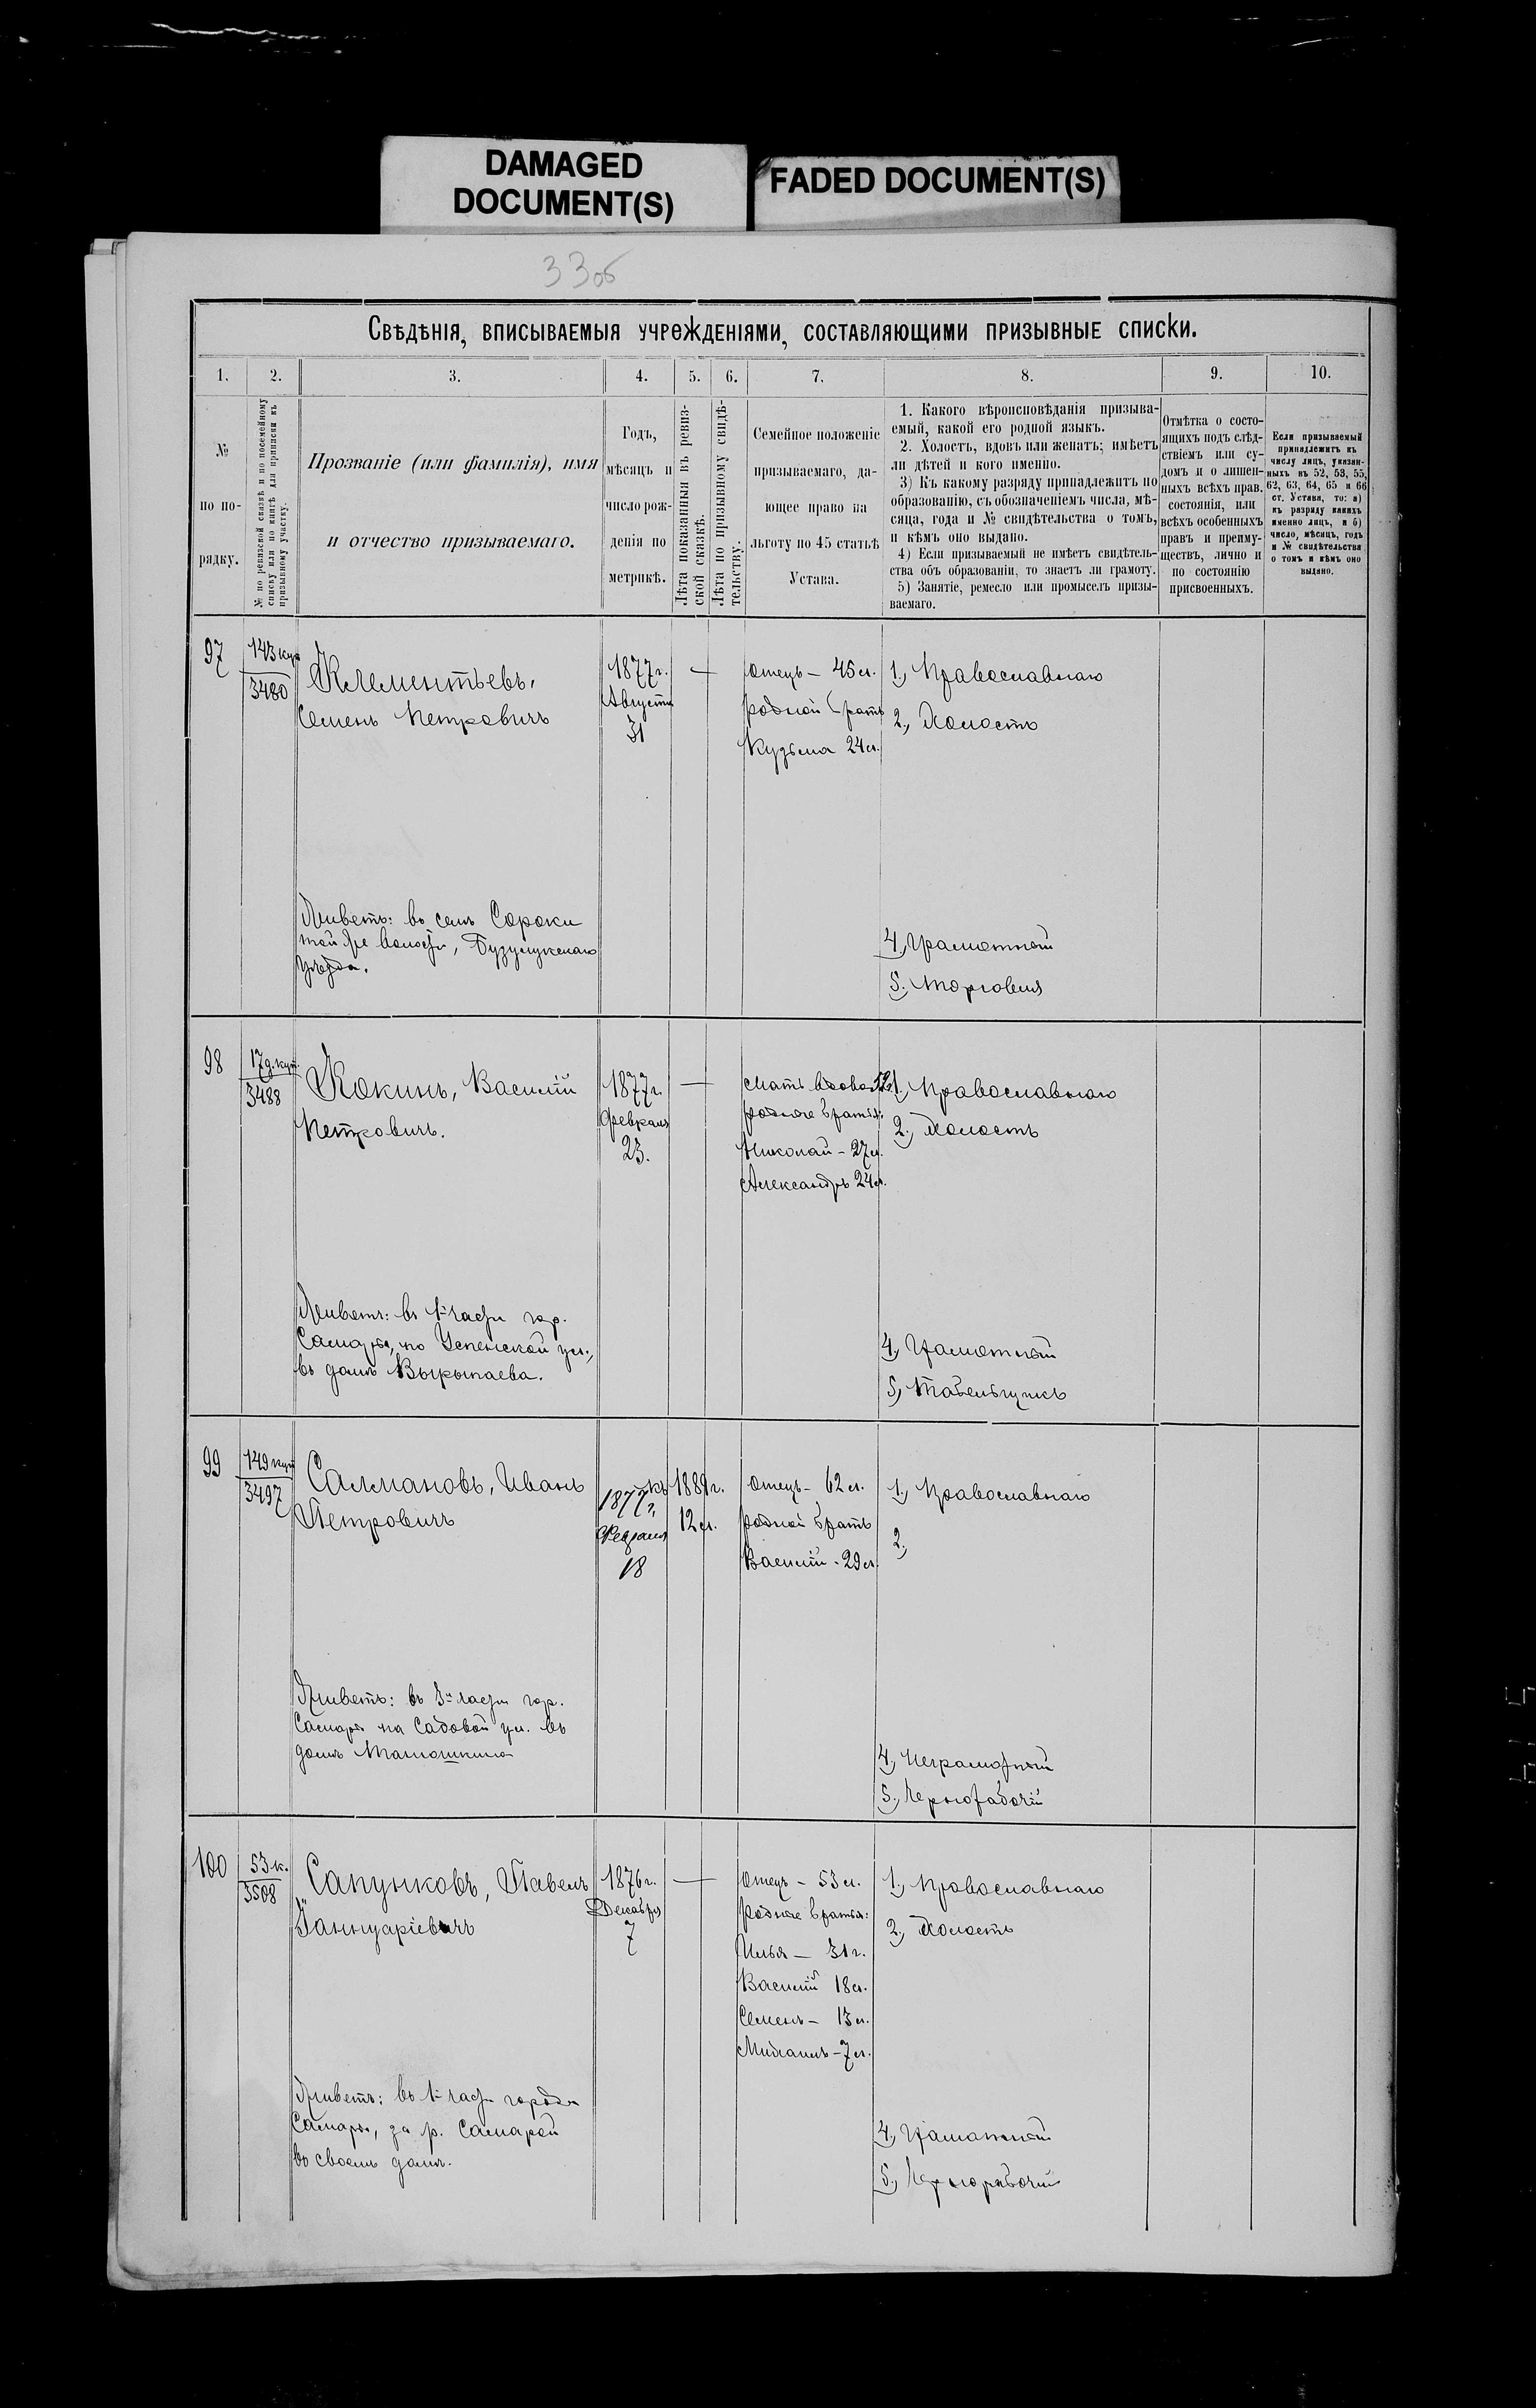 DAMAGED
DOCUMENT(S)
FADED DOCUMENT(S)
33об
Свѣдѣнія, вписываемыя учрежденіями, составляющими призывные списки.
1. 2. 3. 4. 5. 6. 7. 8. 9. 10.
№
по по-
рядку.
№ по ревизской сказкѣ и по посемейному
списку или по книгѣ для приписки къ
призывному участку.
Прозваніе (или фамилія), имя
и отчество призываемаго.
Годъ,
мѣсяцъ и
число рож-
денія по
метрикѣ.
Лѣта показанныя въ ревиз-
ской сказкѣ.
Лѣта по призывному свидѣ-
тельству.
Семейное положеніе
призываемаго, да-
ющее право на
льготу по 45 статьѣ
Устава.
1. Какого вѣроисповѣданія призыва-
емый, какой его родной языкъ.
2. Холостъ, вдовъ или женатъ; имѣетъ
ли дѣтей и кого именно.
3) Къ какому разряду принадлежитъ по
образованію, съ обозначеніемъ числа, мѣ-
сяца, года и № свидѣтельства о томъ,
и кѣмъ оно выдано.
4) Если призываемый не имѣетъ свидѣтель-
ства объ образованіи, то знаетъ ли грамоту.
5) Занятіе, ремесло или промыселъ призы-
ваемаго.
Отмѣтка о состо-
ящихъ подъ слѣд-
ствіемъ или су-
домъ и о лишен-
ныхъ всѣхъ прав.
состоянія, или
всѣхъ особенныхъ
правъ и преиму-
ществъ, лично и
по состоянію
присвоенныхъ.
Если призываемый
принадлежитъ къ
числу лицъ, указан-
ныхъ въ 52, 53, 55,
62, 63, 64, 65 и 66
ст. Устава, то: а)
къ разряду какихъ
именно лицъ, и б)
число, мѣсяцъ, годъ
и № свидѣтельства
о томъ и кѣмъ оно
выдано.
97
143 куп
3480
Клементьевъ,
Семенъ Петровичъ
Живетъ: въ селѣ Сороки
той же волости, Бузулукскаго
уѣзда.
1877 г.
Августа
31
Отецъ – 45 л.
родной братъ
Кузьма 24 л.
1., Православнаго
2., Холостъ
4., Грамотный
5., Торговля
98
17 д. куп.
3488
Кокинъ, Василій
Петровичъ.
Живетъ: въ 1й части гор.
Самары, по Успенской ул.,
въ домѣ Вырыпаева.
1877 г.
Февраля
23.
Мать вдова
родные братья:
Николай – 27 л.
Александръ 24 л.
1., Православнаго
2., Холостъ
4., Грамотный
5., Табельщикъ
99
149 куп
3497
Салмановъ, Иванъ
Петровичъ
Живетъ: въ 3й части гор.
Самары на Садовой ул. въ
домѣ Матюшкина
1877 г.
Февраля
18
къ 1889 г.
12 л.
Отецъ – 62 л.
родной братъ
Василій – 29 л.
1., Православнаго
2.,
4., Неграмотный
5., Чернорабочій
100
53 к.
3508
Сапунковъ, Павелъ
Іаннуаріевичъ
Живетъ: въ 1й части города
Самары, за р. Самарой
въ своемъ домѣ.
1876 г.
Декабря
7
Отецъ – 53 л.
родные братья:
Илья – 31 г.
Василій 18 л.
Семенъ – 13 л.
Михаилъ – 7 л.
1., Православнаго
2., Холостъ
4., Грамотный
5., Чернорабочій